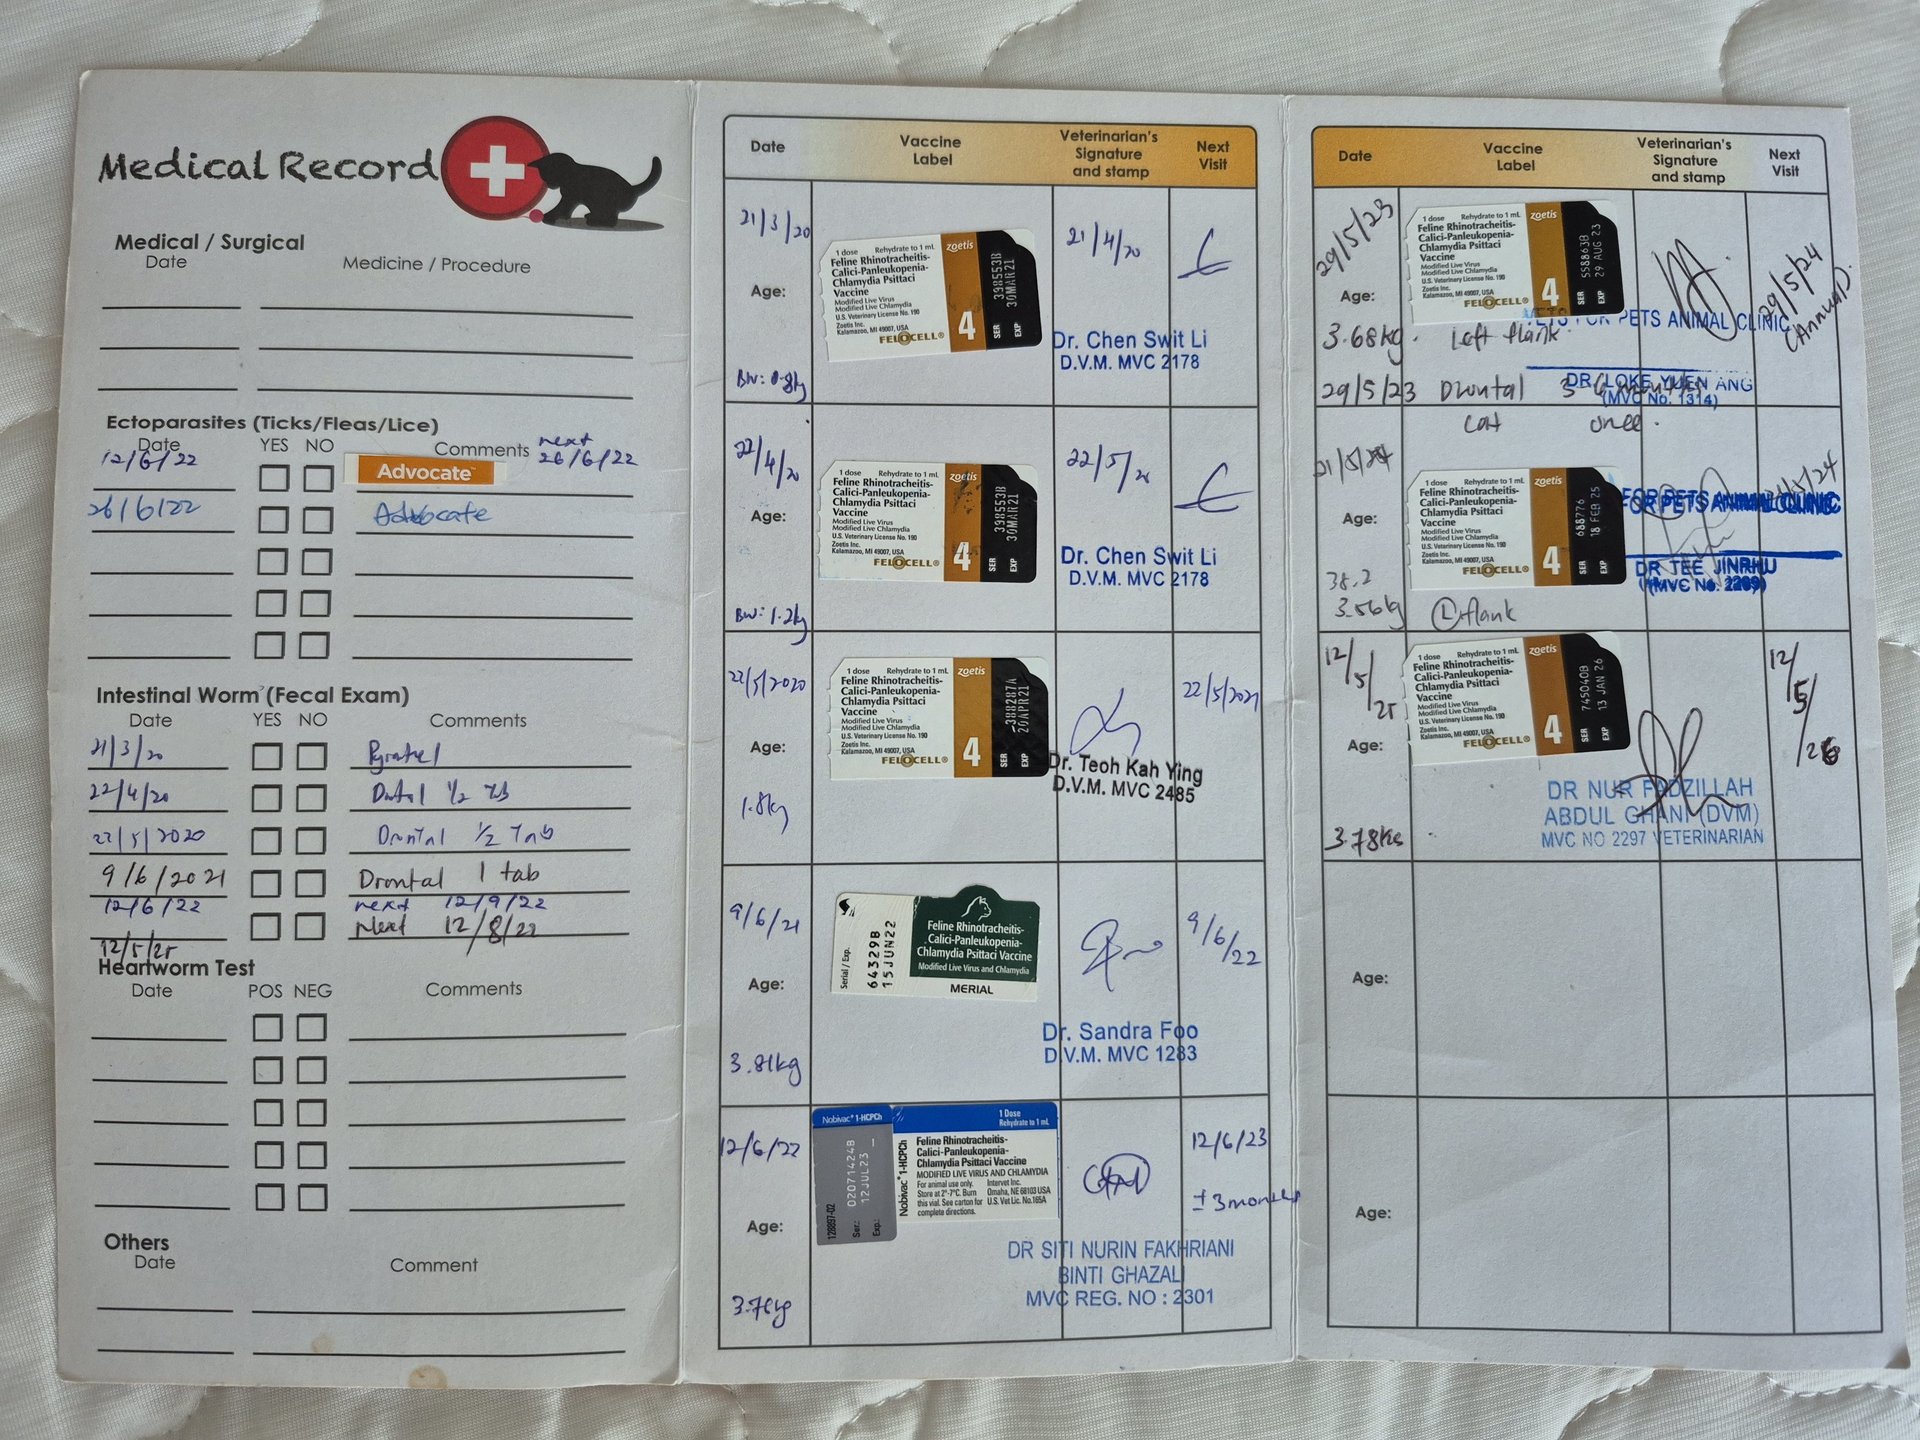 Medical Record
Medical / Surgical
Date
Medicine / Procedure
Ectoparasites (Ticks/Fleas/Lice)
Date YES NO Comments next
12/6/22 Advocate 26/6/22
26/6/22 Advocate
Intestinal Worm (Fecal Exam)
Date YES NO Comments
21/3/20
22/4/20 1/2
22/5/2020 Drontal 1/2 Tab
9/6/2021 Drontal 1 tab
12/6/22 next 12/9/22
12/5/25 Next 12/8/22
Heartworm Test
Date POS NEG Comments
Others
Date
Comment
Date
Vaccine Label
Veterinarian's Signature and stamp
Next Visit
21/3/20
Age:
BW: 0.8kg
1 dose Rehydrate to 1 mL
Feline Rhinotracheitis-
Calici-Panleukopenia-
Chlamydia Psittaci
Vaccine
Modified Live Virus
Modified Live Chlamydia
U.S. Veterinary License No. 190
Zoetis Inc.
Kalamazoo, MI 49007, USA
FELOCELL®
zoetis
4
SER 398553B
EXP 30MAR21
21/4/20
Dr. Chen Swit Li
D.V.M. MVC 2178
22/4/20
Age:
BW: 1.2kg
1 dose Rehydrate to 1 mL
Feline Rhinotracheitis-
Calici-Panleukopenia-
Chlamydia Psittaci
Vaccine
Modified Live Virus
Modified Live Chlamydia
U.S. Veterinary License No. 190
Zoetis Inc.
Kalamazoo, MI 49007, USA
FELOCELL®
zoetis
4
SER 398553B
EXP 30MAR21
22/5/20
Dr. Chen Swit Li
D.V.M. MVC 2178
22/5/2020
Age:
1.8kg
1 dose Rehydrate to 1 mL
Feline Rhinotracheitis-
Calici-Panleukopenia-
Chlamydia Psittaci
Vaccine
Modified Live Virus
Modified Live Chlamydia
U.S. Veterinary License No. 190
Zoetis Inc.
Kalamazoo, MI 49007, USA
FELOCELL®
zoetis
4
SER 388287A
EXP 20APR21
22/5/2021
Dr. Teoh Kah Ying
D.V.M. MVC 2485
9/6/21
Age:
3.81kg
Serial / Exp.
64329B
15JUN22
Feline Rhinotracheitis-
Calici-Panleukopenia-
Chlamydia Psittaci Vaccine
Modified Live Virus and Chlamydia
MERIAL
9/6/22
Dr. Sandra Foo
D.V.M. MVC 1283
12/6/22
Age:
3.76kg
Nobivac® 1-HCPCh
128897-02
Ser.: 02071424B
Exp.: 12JUL23
Nobivac® 1-HCPCh
1 Dose
Rehydrate to 1 mL
Feline Rhinotracheitis-
Calici-Panleukopenia-
Chlamydia Psittaci Vaccine
MODIFIED LIVE VIRUS AND CHLAMYDIA
For animal use only. Intervet Inc.
Store at 2°-7°C. Burn Omaha, NE 68103 USA
this vial. See carton for U.S. Vet Lic. No.165A
complete directions.
12/6/23
± 3 months
DR SITI NURIN FAKHRIANI
BINTI GHAZALI
MVC REG. NO : 2301
Date
Vaccine Label
Veterinarian's Signature and stamp
Next Visit
29/5/23
Age:
3.68kg.
1 dose Rehydrate to 1 mL
Feline Rhinotracheitis-
Calici-Panleukopenia-
Chlamydia Psittaci
Vaccine
Modified Live Virus
Modified Live Chlamydia
U.S. Veterinary License No. 190
Zoetis Inc.
Kalamazoo, MI 49007, USA
FELOCELL®
zoetis
4
SER 558863B
EXP 29 AUG 23
Left flank
29/5/24
(Annual).
VETS FOR PETS ANIMAL CLINIC
DR. LOKE YUEN ANG
(MVC No. 1314)
29/5/23 Drontal
cat once.
Age:
38.2
3.56kg
1 dose Rehydrate to 1 mL
Feline Rhinotracheitis-
Calici-Panleukopenia-
Chlamydia Psittaci
Vaccine
Modified Live Virus
Modified Live Chlamydia
U.S. Veterinary License No. 190
Zoetis Inc.
Kalamazoo, MI 49007, USA
FELOCELL®
zoetis
4
SER 688776
EXP 18 FEB 25
L flank
FOR PETS ANIMAL CLINIC
DR TEE JINRHU
12/5/25
Age:
3.78kg
1 dose Rehydrate to 1 mL
Feline Rhinotracheitis-
Calici-Panleukopenia-
Chlamydia Psittaci
Vaccine
Modified Live Virus
Modified Live Chlamydia
U.S. Veterinary License No. 190
Zoetis Inc.
Kalamazoo, MI 49007, USA
FELOCELL®
zoetis
4
SER 745040B
EXP 13 JAN 26
12/5/26
DR NUR FADZILLAH
ABDUL GHANI (DVM)
MVC NO 2297 VETERINARIAN
Age:
Age: